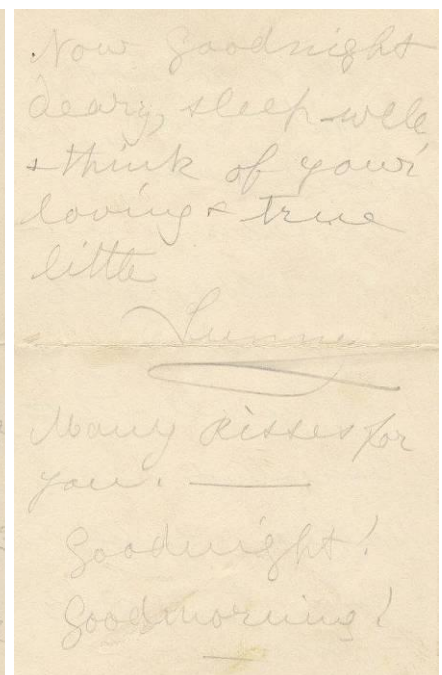 Now Goodnight
deary, sleep well
+ think of your
loving + true
little
Many kisses for
you. —
Goodnight!
Goodmorning!